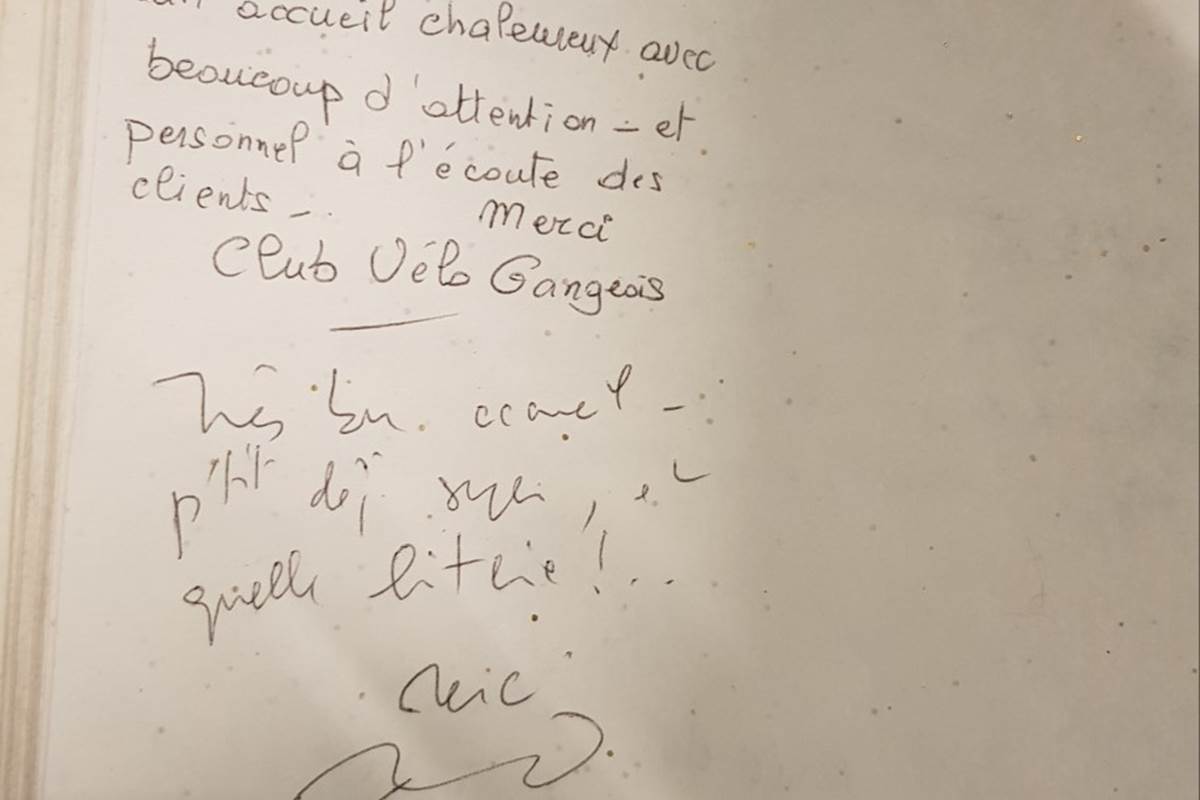 un accueil chaleureux avec
beaucoup d'attention - et
personnel à l'écoute des
clients -.
Merci
Club Vélo Gangeois
Très bon accueil -
p'tit déj super, et
quelle literie !...